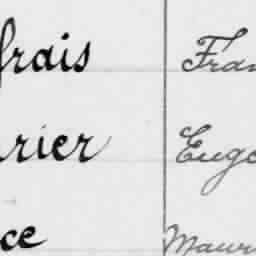 frais Fran
rier Euge
ce Maur